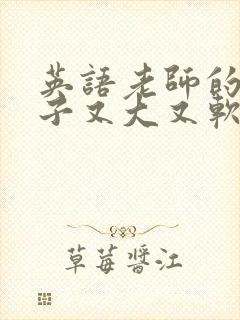 英語老師的
子又大又軟
草莓醬江